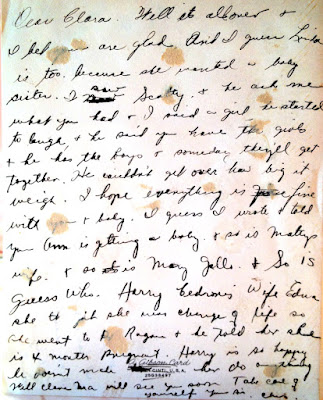 Dear Clara. Well it all over &
I bet you are glad. And I guess Linda
is too. because she wanted a baby
sister. I saw Scotty. & he ask me
what you had & I said a girl. he started
to laugh, & he said you have the girls
& he has the boys & someday they'll get
together. He couldn't get over how big it
weigh. I hope everything is fine
with you & baby. I guess I wrote & told
you Ann is getting a baby. & so is Mattys
wife. & so is Mary Jello. & So is
Guess Who. Harry Cedrones Wife Edna
she thot she was change of life so
she went to Dr Ragone & he told her she
is 4 months pregnant. Harry is so happy
he won't make her do anything
Well Clara Ma will see you soon. Take care of
yourself your Sis.
Gibson Card
CINCINNATI, U.S.A.